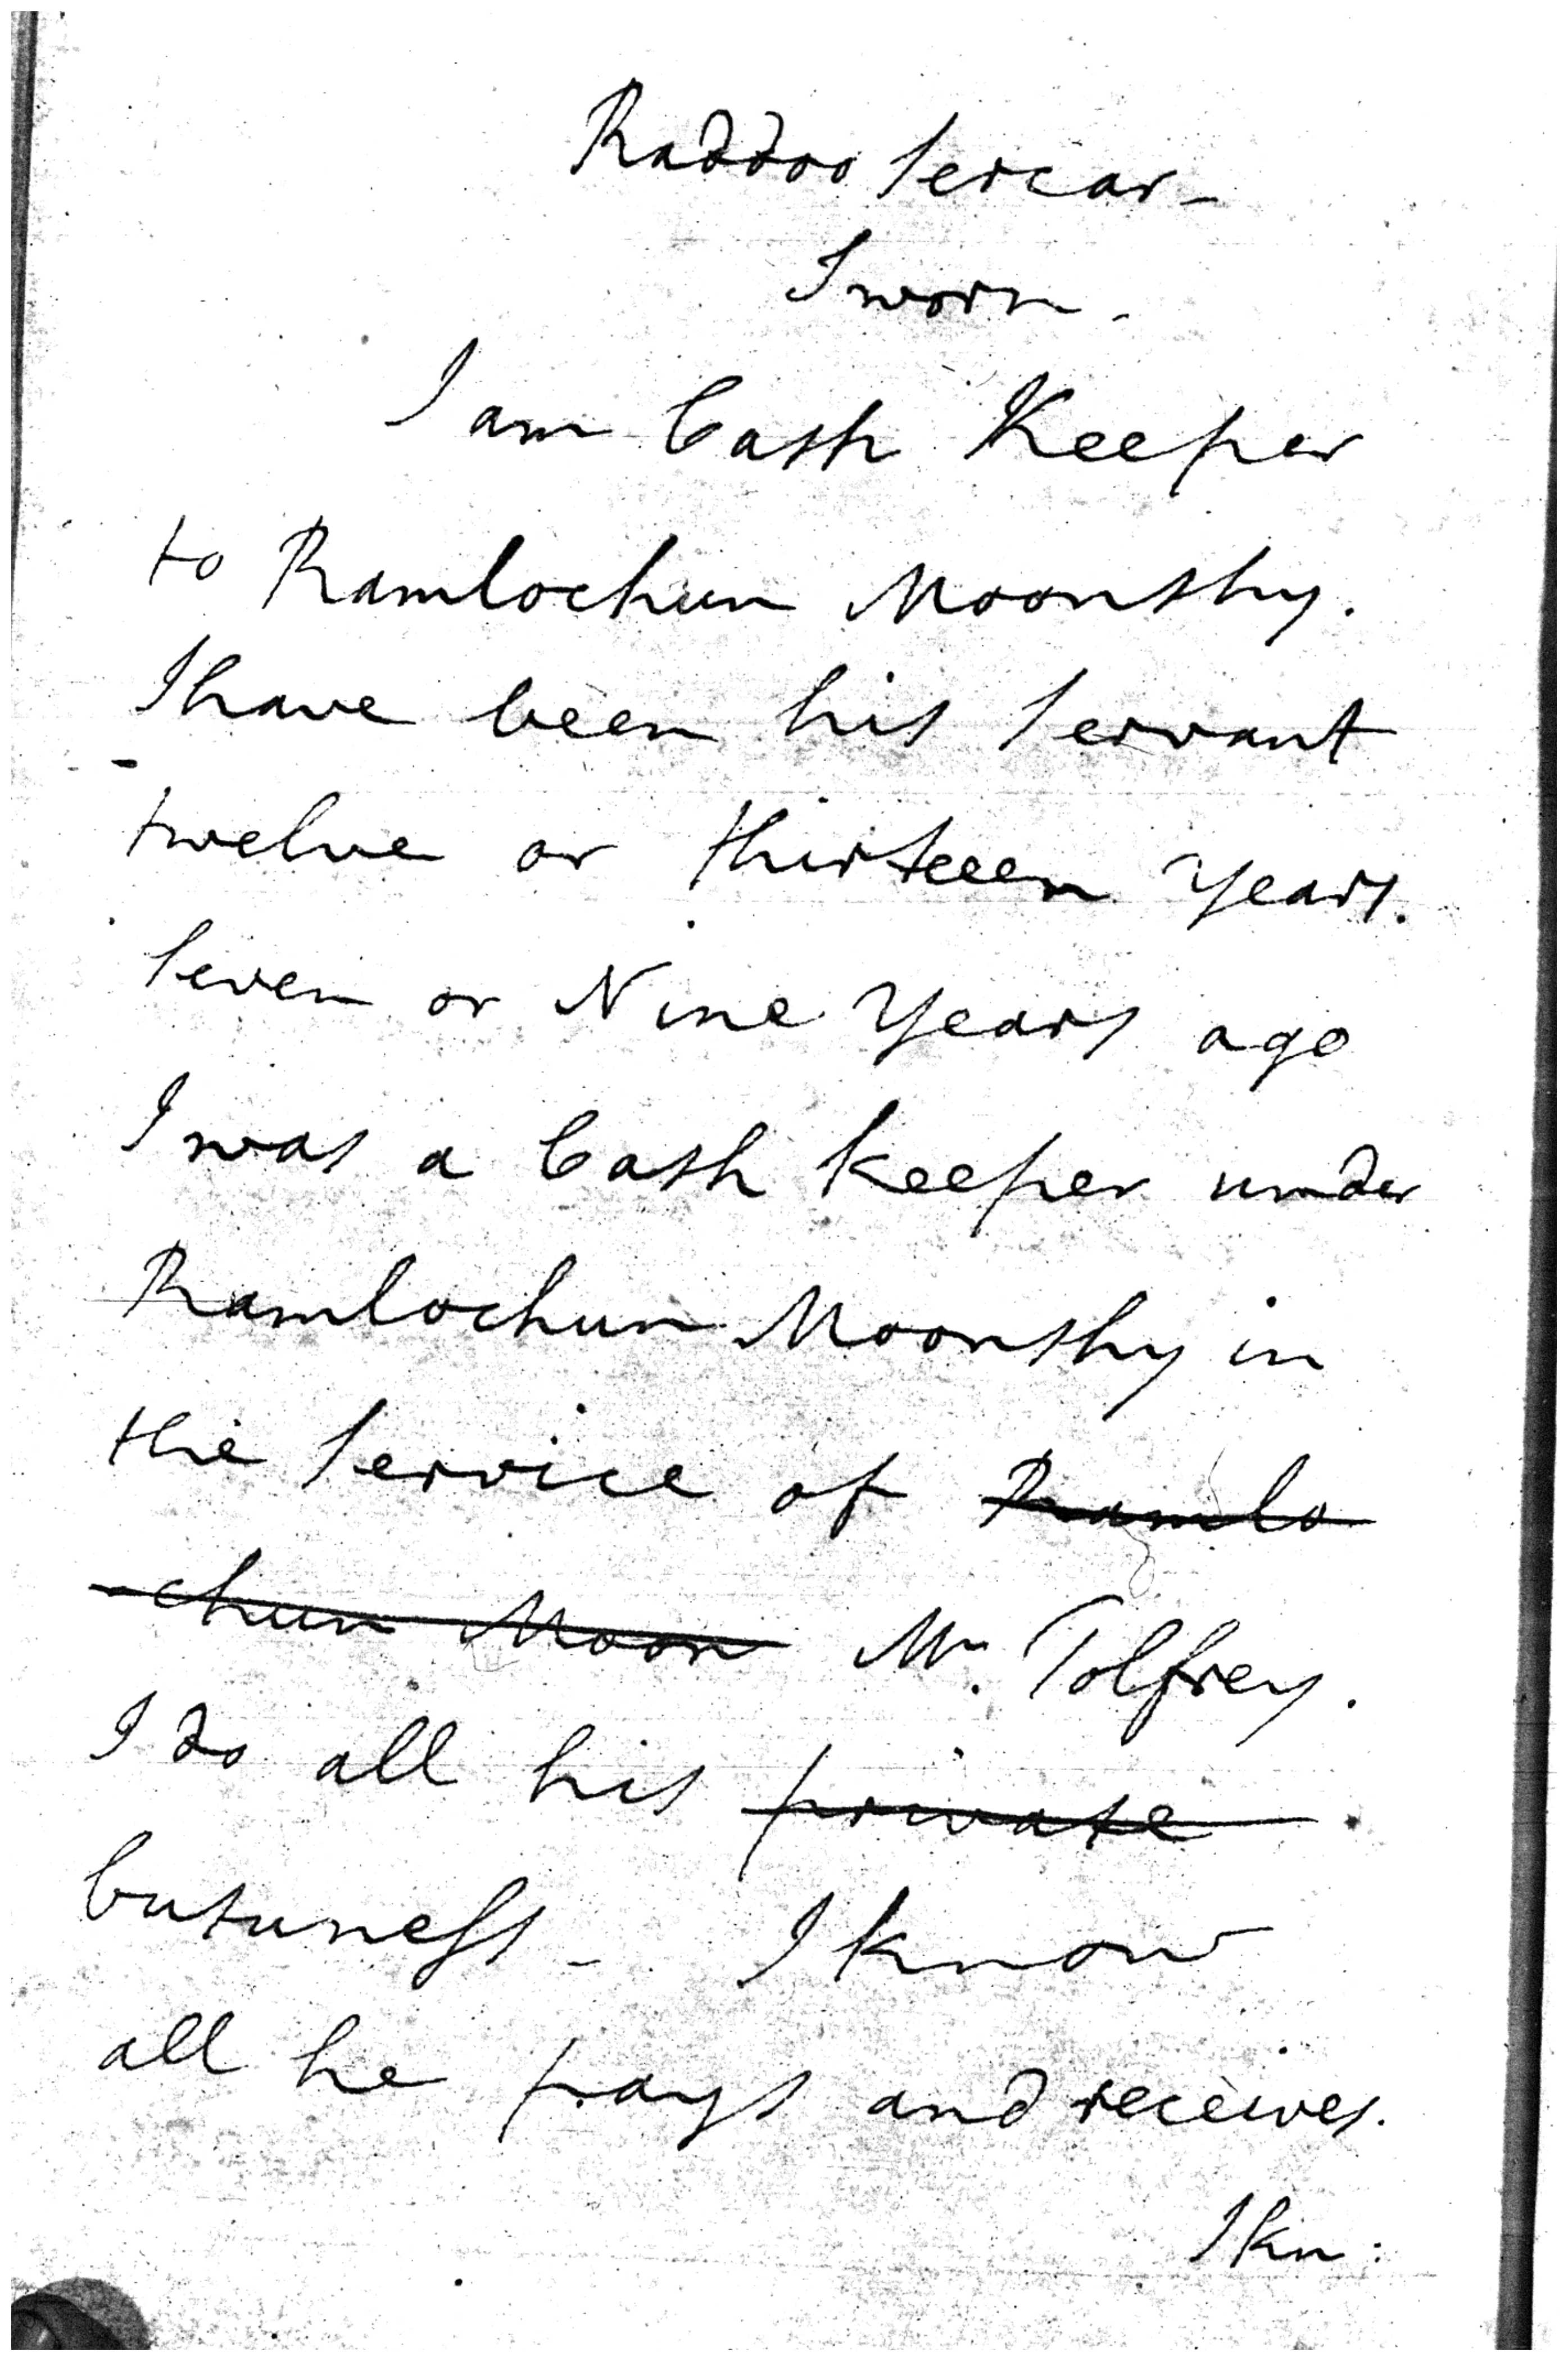 Raddoo Sercar -
Sworn -
I am Cash Keeper
to Ramlochun Moonshy.
I have been his Servant
twelve or thirteen Years.
Seven or Nine Years ago
I was a Cash keeper under
Ramlochun Moonshy in
the Service of Ramlo
-chun Moon Mr. Tolfrey.
I do all his private
business - I know
all he pays and receives.
I kn: